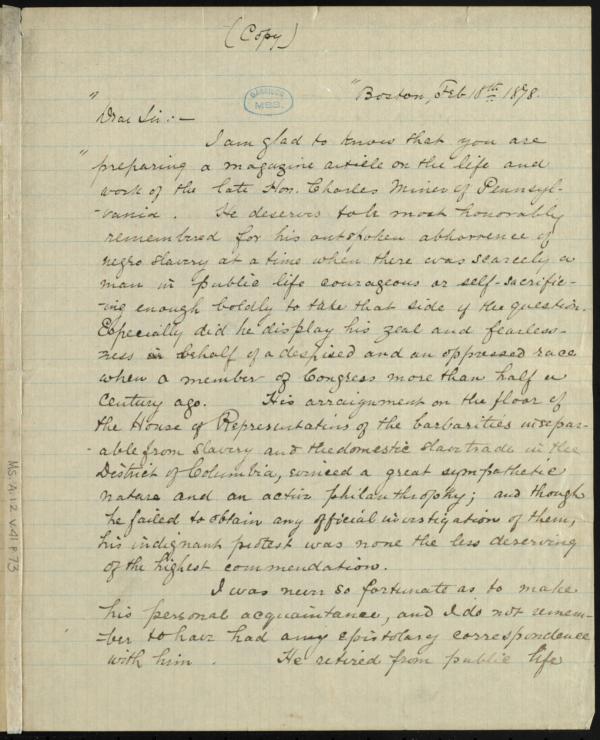 (Copy)
GARRISON
MSS.
" Boston, Feb 18th 1878.
" Dear Sir:—
I am glad to know that you are
" preparing a magazine article on the life and
work of the late Hon. Charles Miner of Pennsyl-
-vania. He deserves to be most honorably
remembered for his outspoken abhorrence of
negro slavery at a time when there was scarcely a
man in public life courageous or self-sacrific-
-ing enough boldly to take that side of the question.
Especially did he display his zeal and fearless-
-ness in behalf of a despised and an oppressed race
when a member of Congress more than half a
century ago. His arraignment on the floor of
the House of Representatives of the barbarities insepar-
-able from slavery and the domestic slave trade in the
District of Columbia, evinced a great sympathetic
nature and an active philanthrophy; and though
he failed to obtain any official investigation of them,
his indignant protest was none the less deserving
of the highest commendation.
I was never so fortunate as to make
his personal acquaintance, and I do not remem-
-ber to have had any epistolary correspondence
with him. He retired from public life
Ms. A. 1. 2 v. 41 p 73